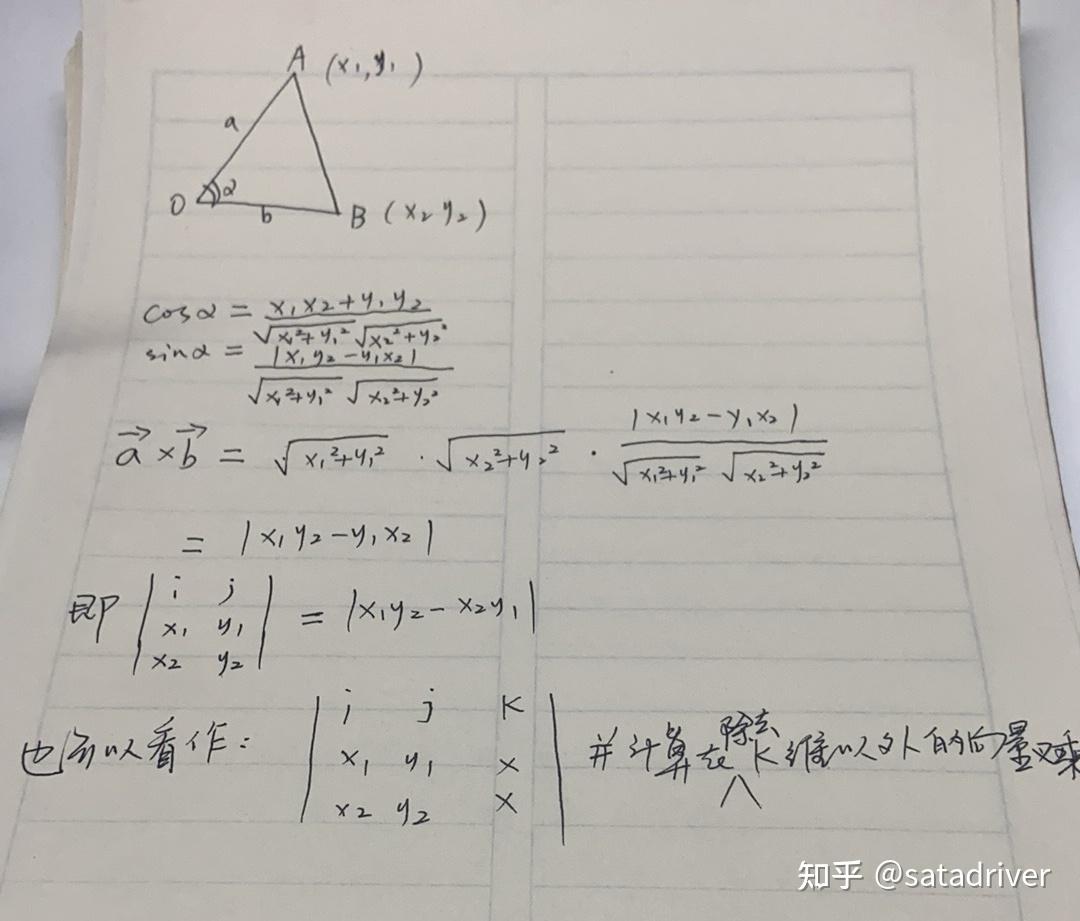 A (x₁,y₁)
a
O α b B (x₂ y₂)
cosα = (x₁x₂+y₁y₂)/(√(x₁²+y₁²) √(x₂²+y₂²))
sinα = |x₁y₂-y₁x₂|/(√(x₁²+y₁²) √(x₂²+y₂²))
a⃗ × b⃗ = √(x₁²+y₁²) · √(x₂²+y₂²) · |x₁y₂-y₁x₂|/(√(x₁²+y₁²) √(x₂²+y₂²))
= |x₁y₂-y₁x₂|
即 | i j ; x₁ y₁ ; x₂ y₂ | = |x₁y₂-x₂y₁|
也可以看作: | i j K ; x₁ y₁ x ; x₂ y₂ x | 并计算在除去K维以外的向量叉乘
知乎 @satadriver